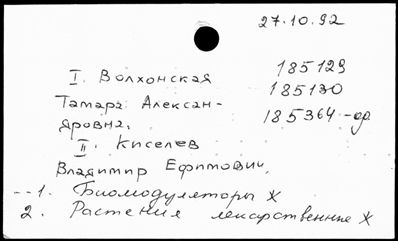 27.10.92
I. Волхонская 185129
Тамара Алексан- 185130
дровна. 185364-ф
II. Киселев
Владимир Ефимович.
1. Биомодуляторы X
2. Растения лекарственные X